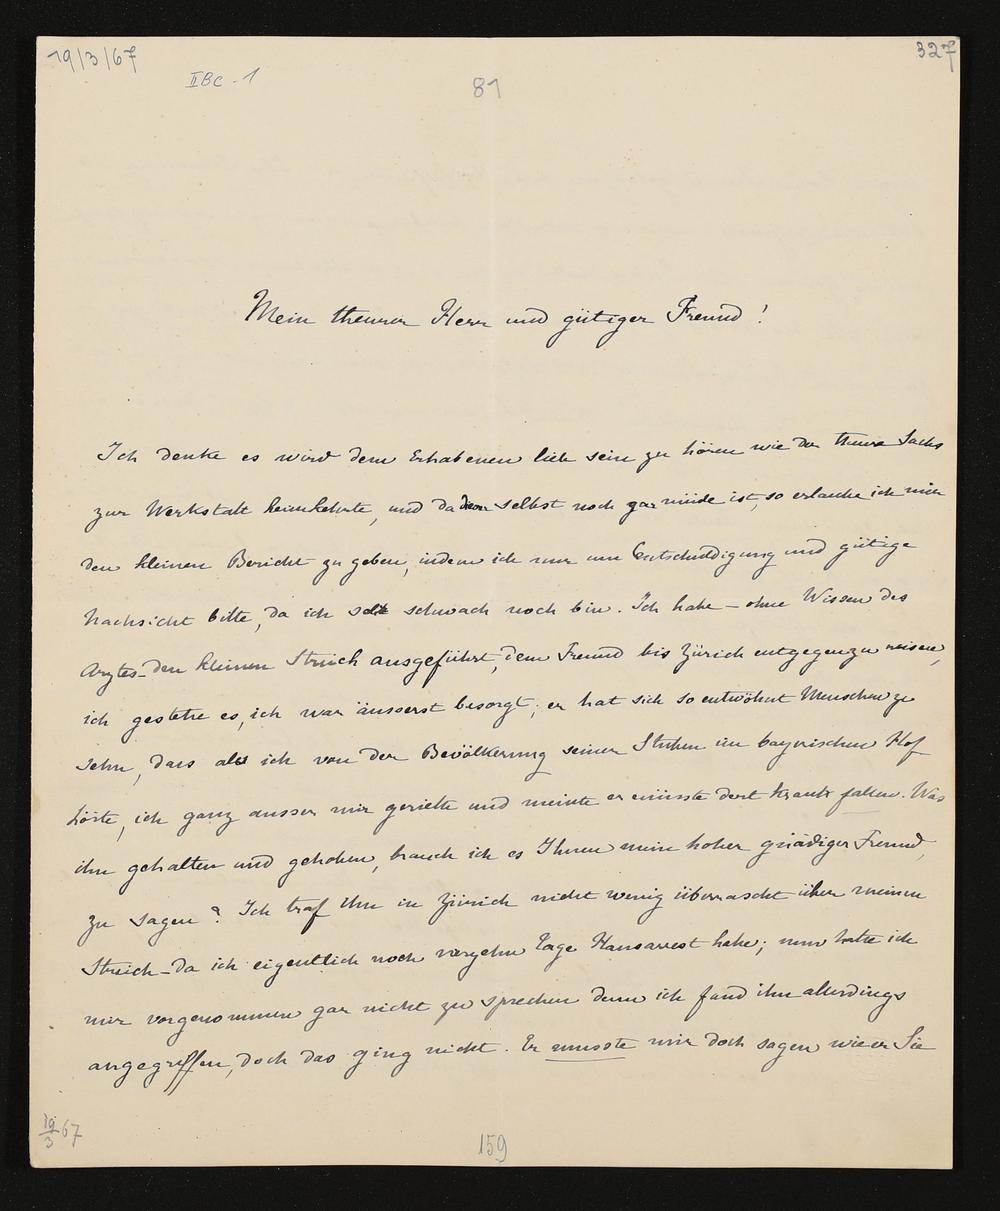 19/3/67
327
II BC - 1
81
Mein theurer Herr und gütiger Freund!
Ich denke es wird dem Erhabenen lieb sein zu hören wie der theure Sachs
zur Werkstatt heimkehrte, und da dieser selbst noch gar müde ist, so erlaube ich mir
den kleinen Bericht zu geben, indem ich nur um Entschuldigung und gütige
Nachsicht bitte, da ich selbst schwach noch bin. Ich habe – ohne Wissen des
Arztes – den kleinen Streich ausgeführt, dem Freund bis Zürich entgegenzu reisen,
ich gestehe es, ich war äusserst besorgt; er hat sich so entwöhnt Menschen zu
sehn, dass als ich von der Bevölkerung seiner Stuben im bayrischen Hof
hörte, ich ganz ausser mir geriethe und meinte er müsste dort krank fallen. Was
ihn gehalten und gehoben, brauch ich es Ihnen mein hoher gnädiger Freund,
zu sagen? Ich traf Ihn in Zürich nicht wenig überrascht über meinen
Streich – da ich eigentlich noch vierzehn Tage Hausarrest habe; nun hatte ich
mir vorgenommen gar nicht zu sprechen denn ich fand ihn allerdings
angegriffen, doch das ging nicht. Er musste mir doch sagen wie er Sie
19/3 67
159